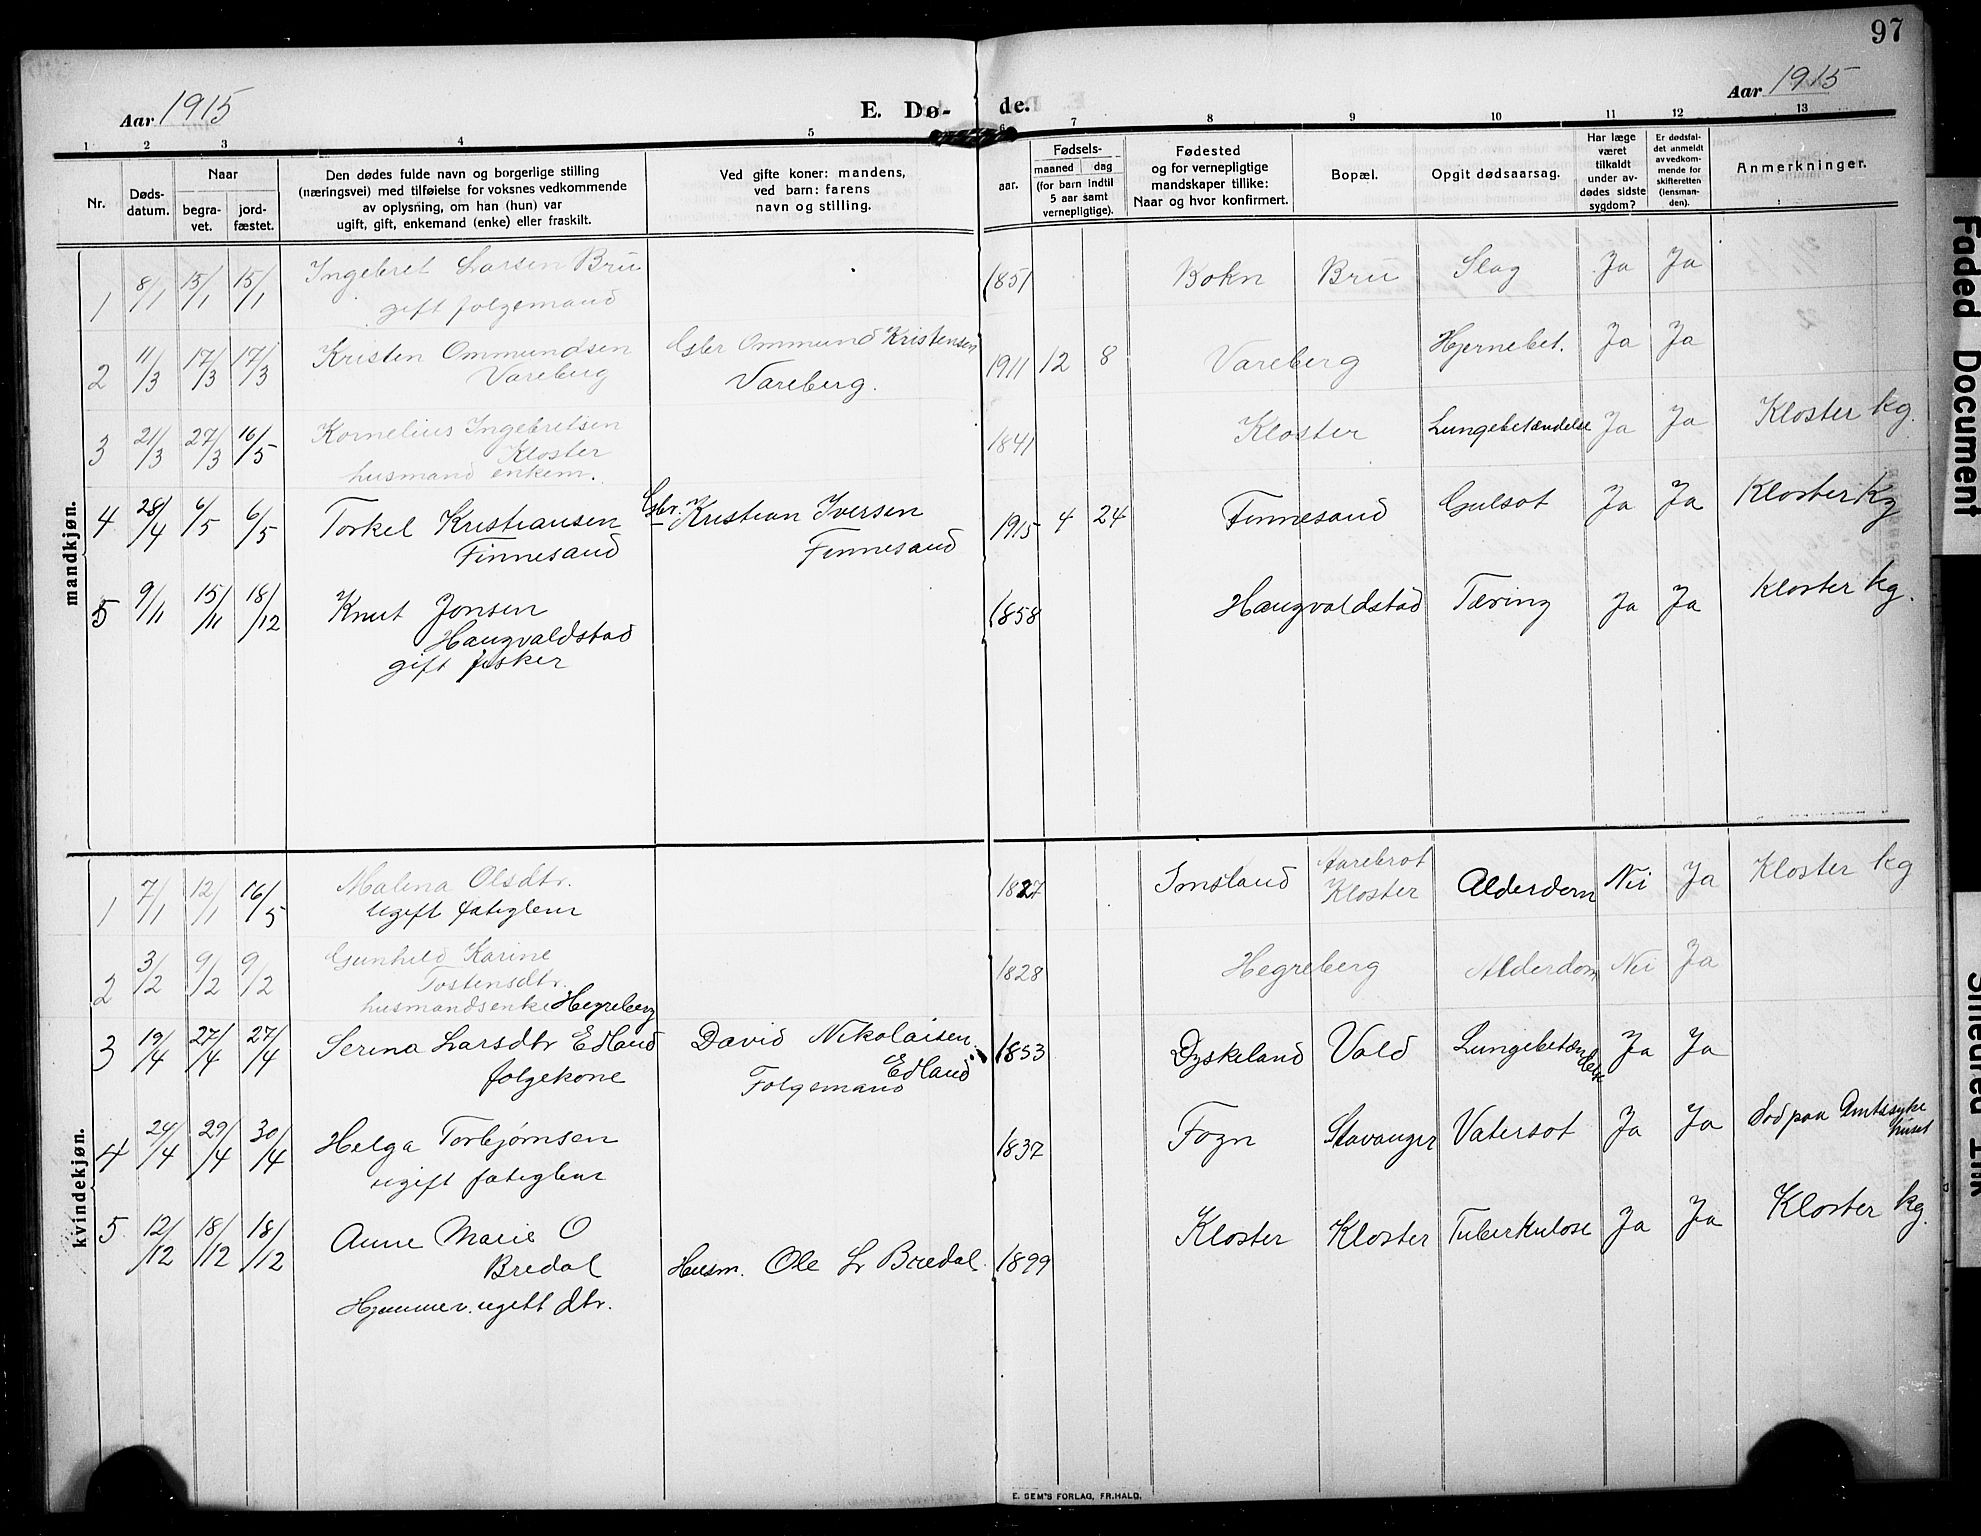 97
Aar 1915
E. Dø- de.
Aar 1915
1 2 3 4 5 6 7 8 9 10 11 12 13
Nr.
Døds-
datum.
Naar
begra-
vet.
jord-
fæstet.
Den dødes fulde navn og borgerlige stilling
(næringsvei) med tilføielse for voksnes vedkommende
av oplysning, om han (hun) var
ugift, gift, enkemand (enke) eller fraskilt.
Ved gifte koner: mandens,
ved barn: farens
navn og stilling.
Fødsels-
aar.
maaned dag
(for barn indtil
5 aar samt
vernepligtige).
Fødested
og for vernepligtige
mandskaper tillike:
Naar og hvor konfirmert.
Bopæl.
Opgit dødsaarsag.
Har læge
været
tilkaldt
under av-
dødes sidste
sygdom?
Er dødsfal-
det anmeldt
av vedkom-
mende for
skifteretten
(lensman-
den).
Anmerkninger.
mandkjøn.
1 8/1 15/1 15/1 Ingebret Larsen Bru 1851 Bokn Bru Slag Ja Ja
gift folgemand
2 11/3 17/3 17/3 Kristen Ommundsen Gbr Ommund Kristensen 1911 12 8 Vareberg Hjernebet. Ja Ja
Vareberg Vareberg.
3 21/3 27/3 16/5 Kornelius Ingebretsen 1841 Kloster Lungebetændelse Ja Ja Kloster kg.
Kloster
husmand enkem.
4 28/4 6/5 6/5 Torkel Kristiansen Gbr. Kristian Iversen 1915 4 24 Finnesand Gulsot Ja Ja Kloster Kg
Finnesand Finnesand
5 9/11 15/11 18/12 Knut Jonsen 1858 Haugvaldstad Tæring Ja Ja Kloster kg.
Haugvaldstad
gift fisker
kvindekjøn.
1 7/1 12/1 16/5 Malena Olsdtr. 1827 Imsland Aarebrot Alderdom Nei Ja Kloster kg
Ugift fatiglem Kloster
2 3/2 9/2 9/2 Gunhild Karine 1828 Hegreberg Alderdom Nei Ja
Tostensdtr.
husmandsenke Hegreberg
3 19/4 27/4 27/4 Serina Larsdtr Edland David Nikolaisen 1853 Dyskeland Vald Lungebetændelse Ja Ja
folgekone Edland
Folgemand
4 24/4 29/4 30/4 Helga Torbjørnsen 1837 Fogn Stavanger Vatersot Ja Ja Død paa Amtssyke
ugift fatiglem huset
5 12/12 18/12 18/12 Anne Marie O 1899 Kloster Kloster Tuberkulose Ja Ja Kloster kg.
Bredal Husm. Ole L Bredal.
Hjemmev. ugift dtr.
E. SEM'S FORLAG, FR.HALD.
Faded Document
Smeared Ink